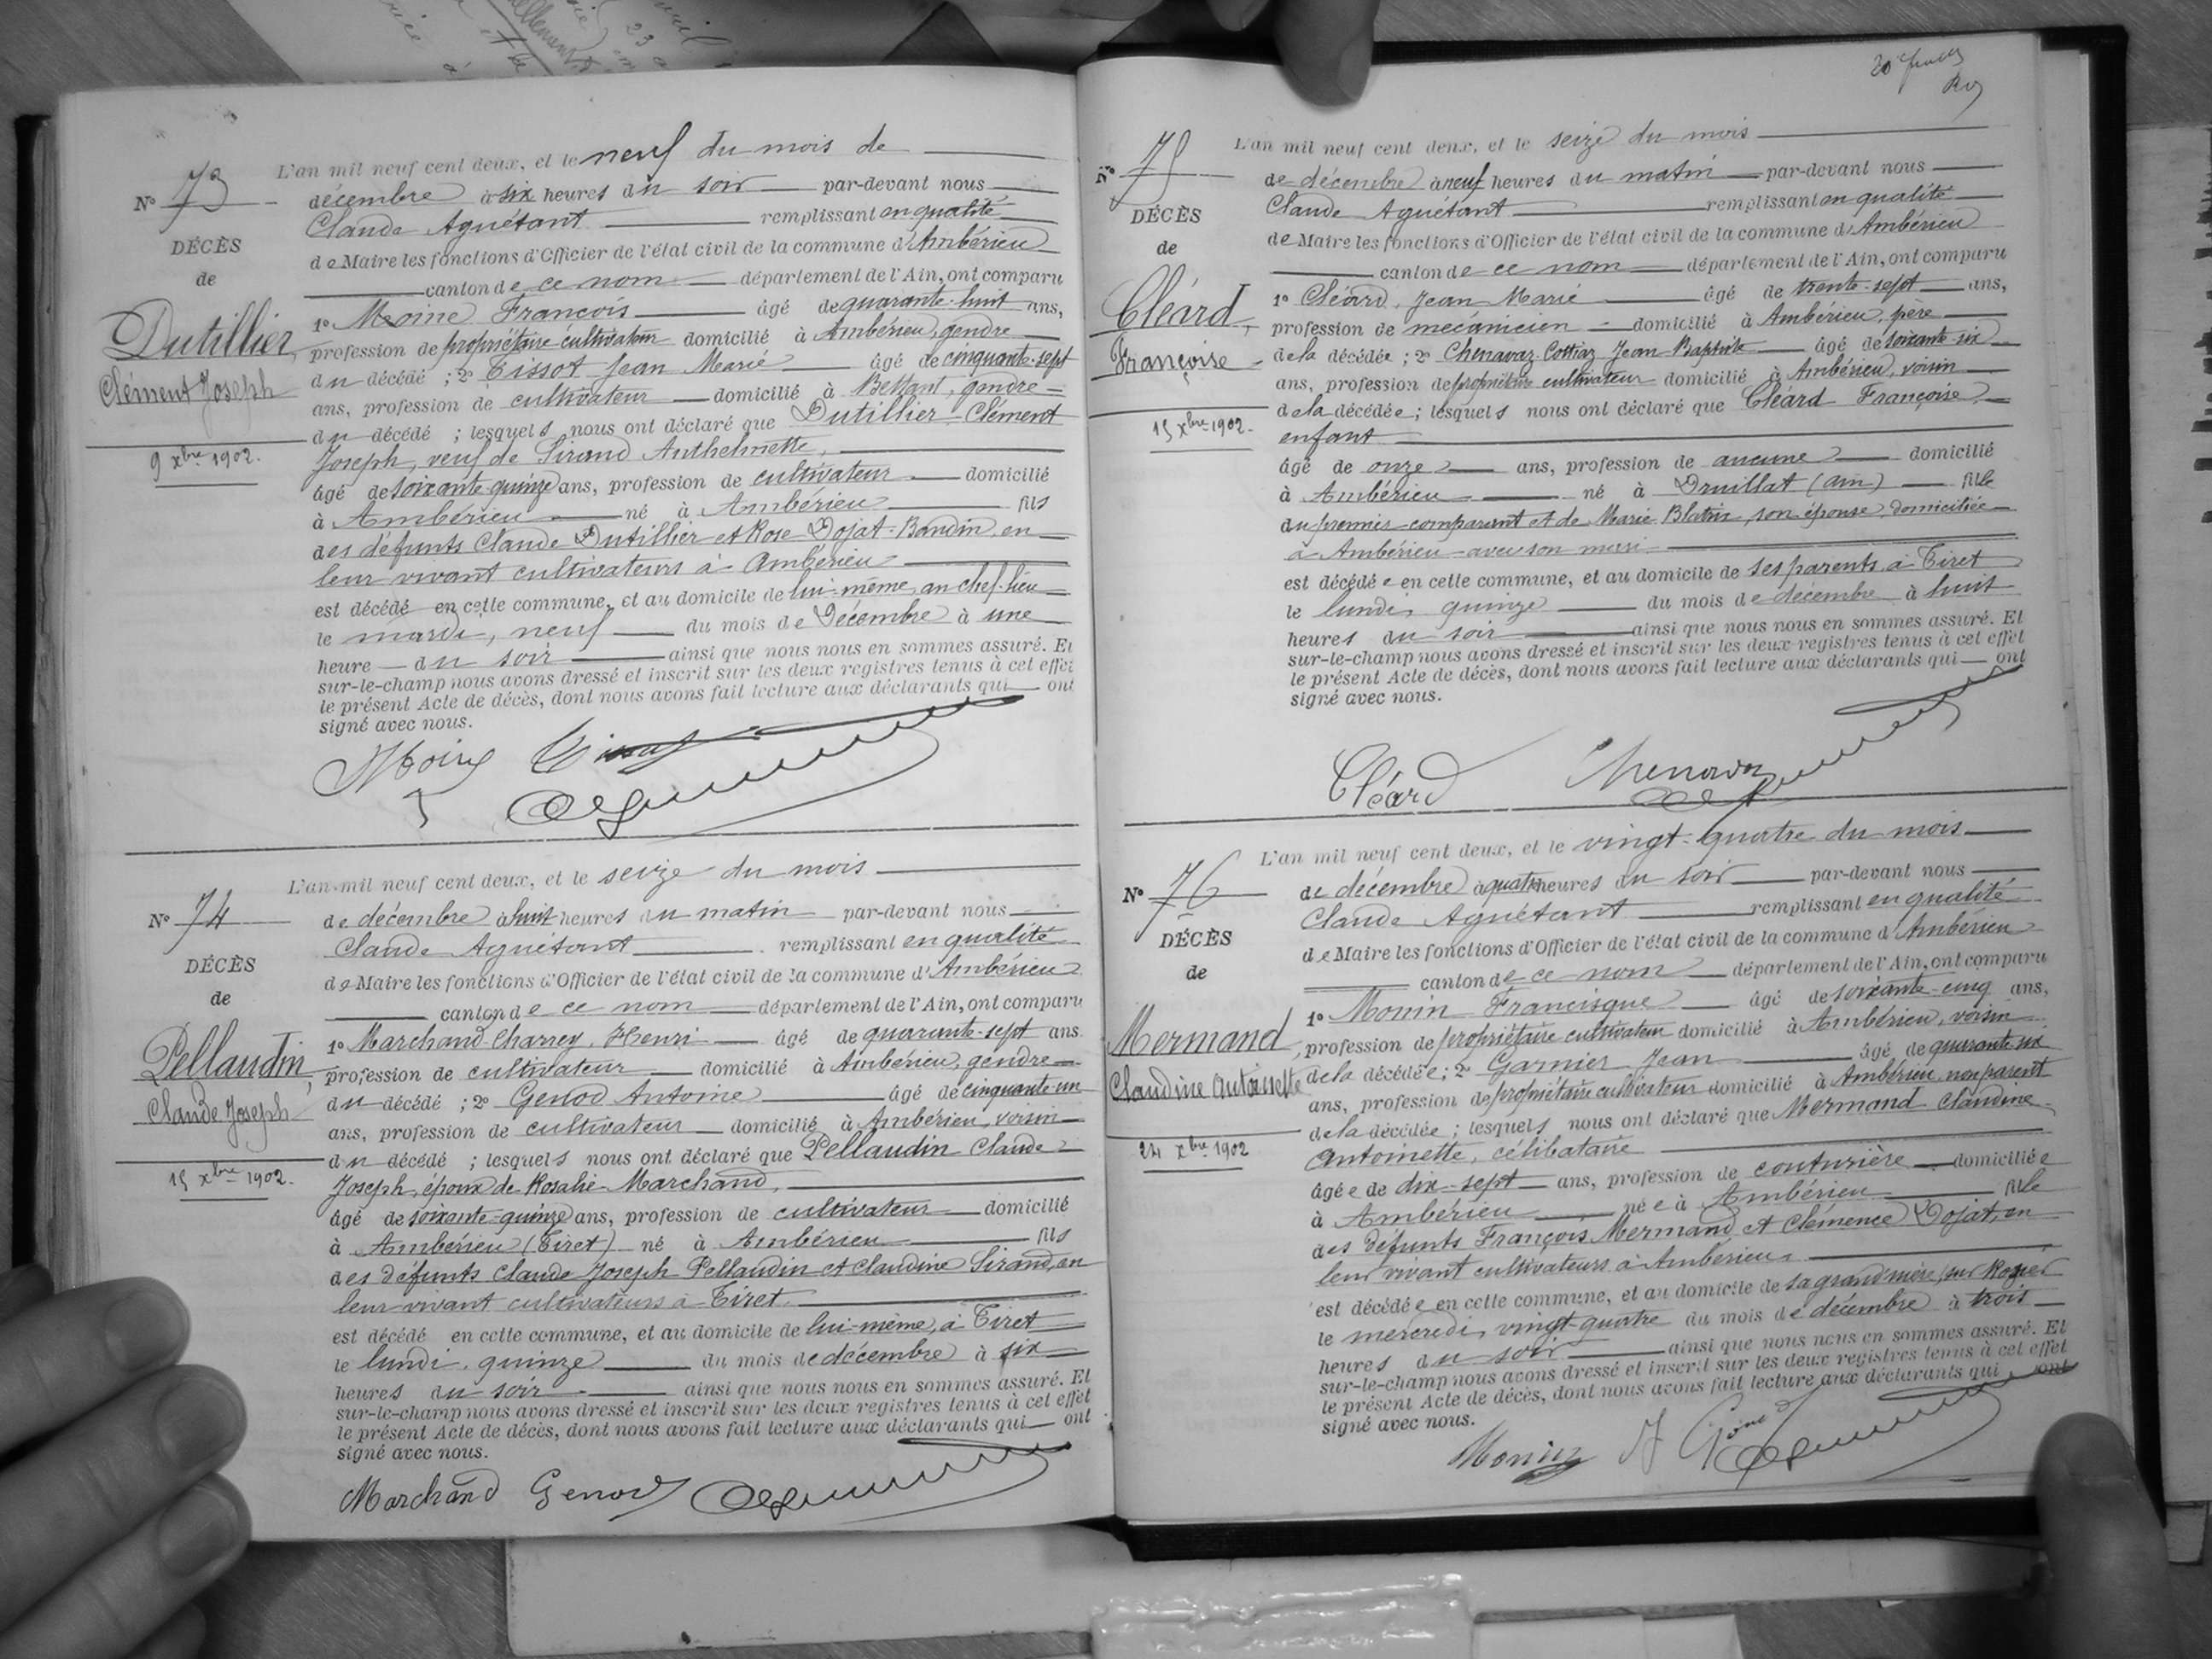 N° 73
DÉCÈS
de
Dutillier,
Clément Joseph
9 xbre 1902.
L'an mil neuf cent deux, et le neuf du mois de
décembre à six heures du soir par-devant nous
Claude Aguétant remplissant en qualité
de Maire les fonctions d'Officier de l'état civil de la commune d'Ambérieu
canton de ce nom département de l'Ain, ont comparu
1° Moine François âgé de quarante-huit ans,
profession de propriétaire cultivateur domicilié à Ambérieu, gendre
du décédé ; 2° Tissot Jean Marie âgé de cinquante-sept
ans, profession de cultivateur domicilié à Bettant, gendre
du décédé ; lesquels nous ont déclaré que Dutillier Clément
Joseph, veuf de Sirand Anthelmette,
âgé de soixante-quinze ans, profession de cultivateur domicilié
à Ambérieu né à Ambérieu fils
des défunts Claude Dutillier et Rose Dojat-Bandin, en
leur vivant cultivateurs à Ambérieu
est décédé en cette commune, et au domicile de lui-même, au chef-lieu
le mardi, neuf du mois de Décembre à une
heure du soir ainsi que nous nous en sommes assuré. Et
sur-le-champ nous avons dressé et inscrit sur les deux registres tenus à cet effet
le présent Acte de décès, dont nous avons fait lecture aux déclarants qui ont
signé avec nous.
Moine Tissot
N° 74
DÉCÈS
de
Pellaudin,
Claude Joseph
15 xbre 1902.
L'an mil neuf cent deux, et le seize du mois
de décembre à huit heures du matin par-devant nous
Claude Aguétant remplissant en qualité
de Maire les fonctions d'Officier de l'état civil de la commune d'Ambérieu
canton de ce nom département de l'Ain, ont comparu
1° Marchand-Charrey, Henri âgé de quarante-sept ans
profession de cultivateur domicilié à Ambérieu, gendre
du décédé ; 2° Genod Antoine âgé de cinquante-un
ans, profession de cultivateur domicilié à Ambérieu, voisin
du décédé ; lesquels nous ont déclaré que Pellaudin Claude
Joseph, époux de Rosalie Marchand,
âgé de soixante-quinze ans, profession de cultivateur domicilié
à Ambérieu (Tiret) né à Ambérieu fils
des défunts Claude Joseph Pellaudin et Claudine Sirand, en
leur vivant cultivateurs à Tiret.
est décédé en cette commune, et au domicile de lui-même, à Tiret
le lundi, quinze du mois de décembre à six
heures du soir ainsi que nous nous en sommes assuré. Et
sur-le-champ nous avons dressé et inscrit sur les deux registres tenus à cet effet
le présent Acte de décès, dont nous avons fait lecture aux déclarants qui ont
signé avec nous.
Marchand Genod
N° 75
DÉCÈS
de
Cléard,
Françoise
15 xbre 1902.
L'an mil neuf cent deux, et le seize du mois
de décembre à neuf heures du matin par-devant nous
Claude Aguétant remplissant en qualité
de Maire les fonctions d'Officier de l'état civil de la commune d'Ambérieu
canton de ce nom département de l'Ain, ont comparu
1° Cléard, Jean Marie âgé de trente-sept ans,
profession de mécanicien domicilié à Ambérieu, père
de la décédée ; 2° Chenavaz-Cottiaz Jean Baptiste âgé de soixante-six
ans, profession de propriétaire cultivateur domicilié à Ambérieu, voisin
de la décédée ; lesquels nous ont déclaré que Cléard Françoise,
enfant
âgé de onze ans, profession de aucune domicilié
à Ambérieu né à Druillat (Ain) fille
du premier comparant et de Marie son épouse domiciliée
à Ambérieu avec son mari
est décédée en cette commune, et au domicile de ses parents, à Tiret
le lundi, quinze du mois de décembre à huit
heures du soir ainsi que nous nous en sommes assuré. Et
sur-le-champ nous avons dressé et inscrit sur les deux registres tenus à cet effet
le présent Acte de décès, dont nous avons fait lecture aux déclarants qui ont
signé avec nous.
Cléard Chenavaz
N° 76
DÉCÈS
de
Mermand,
Claudine Antoinette
24 xbre 1902
L'an mil neuf cent deux, et le vingt-quatre du mois
de décembre à quatre heures du soir par-devant nous
Claude Aguétant remplissant en qualité
de Maire les fonctions d'Officier de l'état civil de la commune d'Ambérieu
canton de ce nom département de l'Ain, ont comparu
1° Monin Francisque âgé de soixante-cinq ans,
profession de propriétaire cultivateur domicilié à Ambérieu, voisin
de la décédée ; 2° Garnier Jean âgé de quarante-six
ans, profession de propriétaire cultivateur domicilié à Ambérieu, non parent
de la décédée ; lesquels nous ont déclaré que Mermand Claudine
Antoinette, célibataire
âgée de dix-sept ans, profession de couturière domiciliée
à Ambérieu née à Ambérieu fille
des défunts François Mermand et Clémence Dojat, en
leur vivant cultivateurs à Ambérieu
est décédée en cette commune, et au domicile de sa grand'mère, sur
le mercredi, vingt-quatre du mois de décembre à trois
heures du soir ainsi que nous nous en sommes assuré. Et
sur-le-champ nous avons dressé et inscrit sur les deux registres tenus à cet effet
le présent Acte de décès, dont nous avons fait lecture aux déclarants qui ont
signé avec nous.
Monin